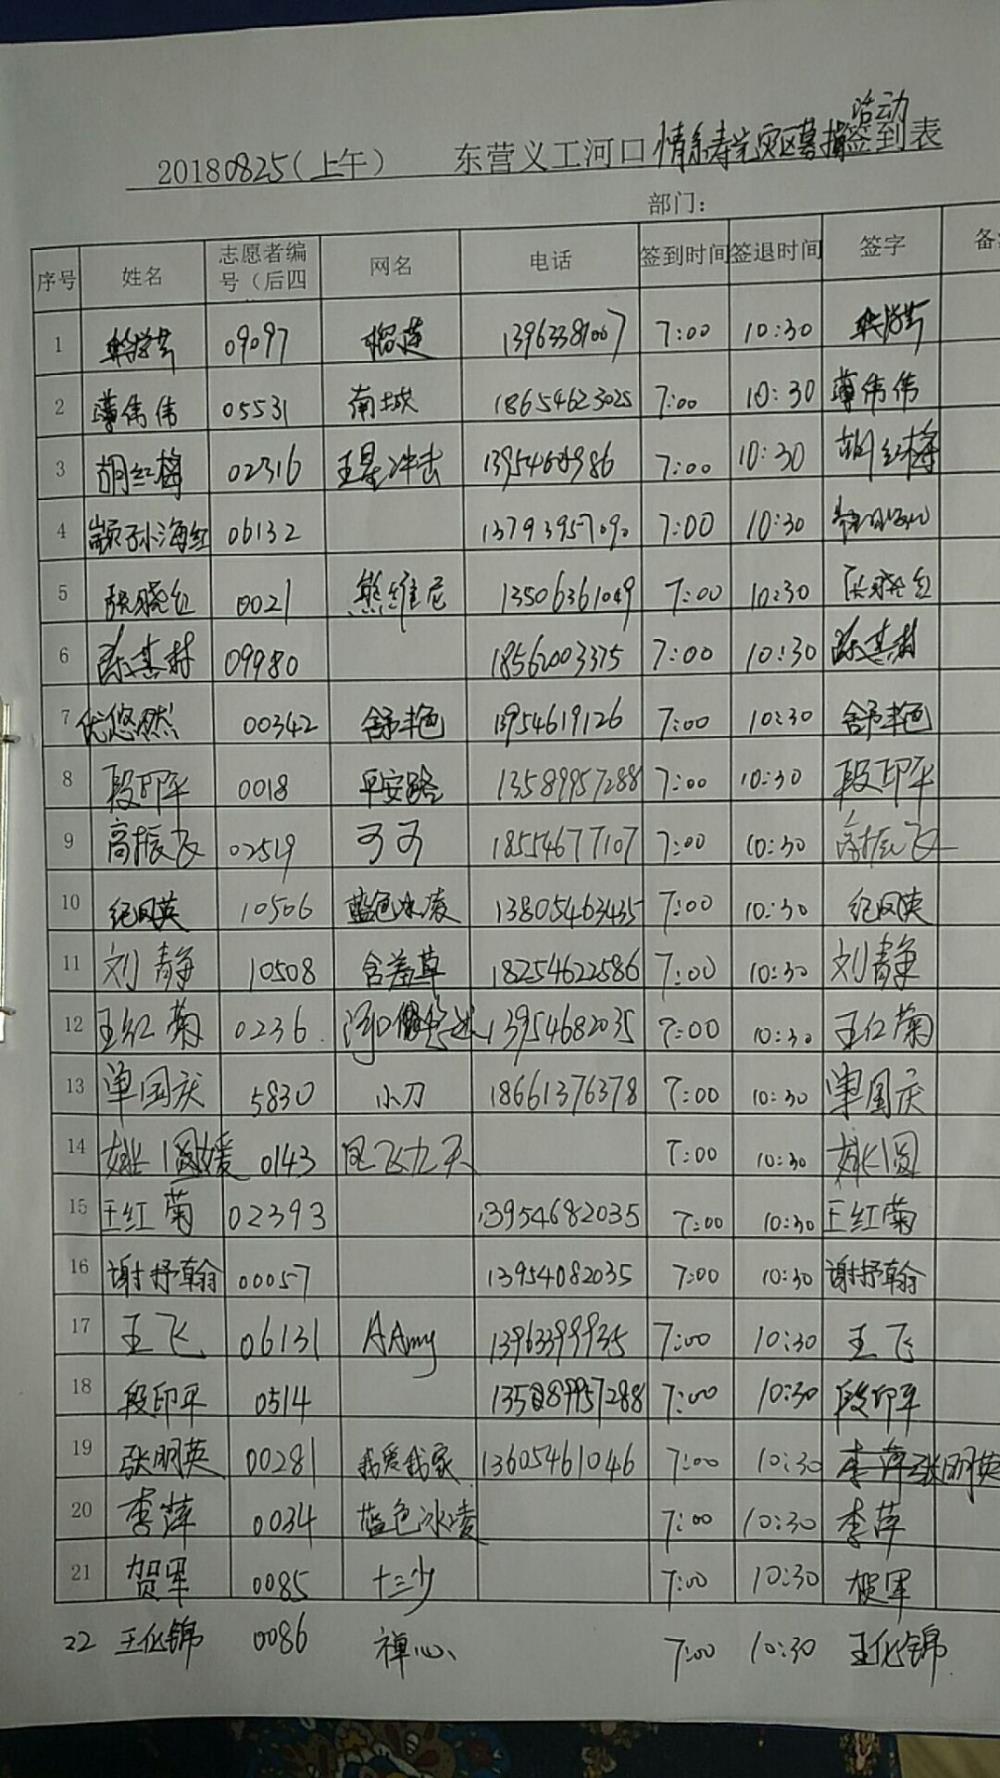 活动
20180825(上午) 东营义工河口情系寿光灾区募捐签到表
部门:
序号 姓名 志愿者编号(后四 网名 电话 签到时间 签退时间 签字
1 09097 榴莲 13963381007 7:00 10:30
2 薄伟伟 05531 南城 18654623025 7:00 10:30 薄伟伟
3 胡红梅 02316 7:00 10:30 胡红梅
4 颛孙海红 06132 13793957090 7:00 10:30
5 张晓红 0021 熊维尼 13506361049 7:00 10:30 张晓红
6 陈其村 09980 18562003375 7:00 10:30 陈其村
7 优悠然 00342 舒艳 13954619126 7:00 10:30 舒艳
8 段印平 0018 平安路 13589957288 7:00 10:30 段印平
9 高振飞 02519 可可 18554677107 7:00 10:30 高振飞
10 纪风英 10506 蓝色冰凌 13805463435 7:00 10:30 纪风英
11 刘静 10508 含羞草 18254622586 7:00 10:30 刘静
12 王红菊 0236 13954682035 7:00 10:30 王红菊
13 单国庆 5830 小刀 18661376378 7:00 10:30 单国庆
14 0143 凤飞九天 7:00 10:30
15 王红菊 02393 13954682035 7:00 10:30 王红菊
16 谢抒翰 00057 13954082035 7:00 10:30 谢抒翰
17 王飞 06131 AAmy 13963399935 7:00 10:30 王飞
18 段印平 0514 13589957288 7:00 10:30 段印平
19 张明英 00281 我爱我家 13605461046 7:00 10:30 李萍张明英
20 李萍 0034 蓝色冰凌 7:00 10:30 李萍
21 贺军 0085 十三少 7:00 10:30 贺军
22 王化锦 0086 禅心 7:00 10:30 王化锦